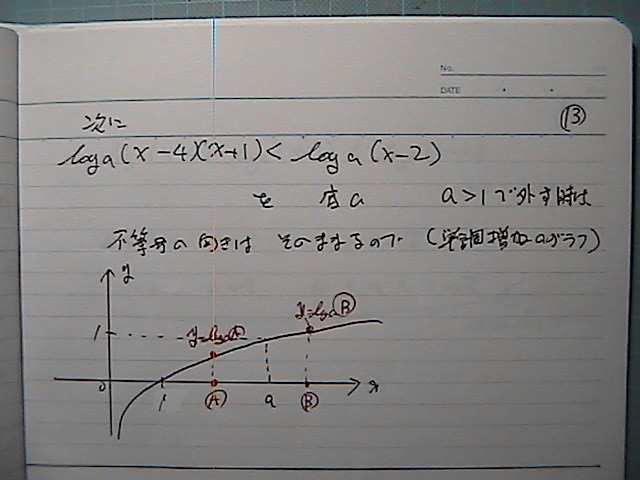 No.
DATE
⑬
次に
log a (x-4)(x+1) < log a (x-2)
を 底a a>1で外す時は
不等号の向きは そのままなので (単調増加のグラフ)
y
1 y=log a Ⓐ y=log a Ⓑ
0 1 Ⓐ a Ⓑ x